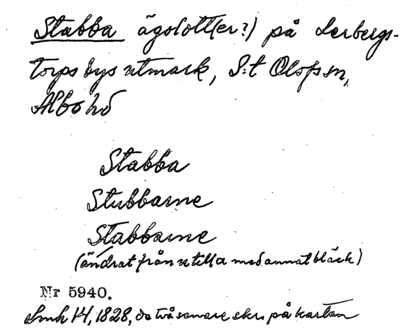 Stabba ägolott(er?) på Lerbergs-
torps bys utmark, S:t Olofs sn,
Albo hd
Stabba
Stubbarne
Stabbarne
(ändrat från u till a med annat bläck)
Nr 5940.
Smh 14, 1828, de två senare skr. på kartan